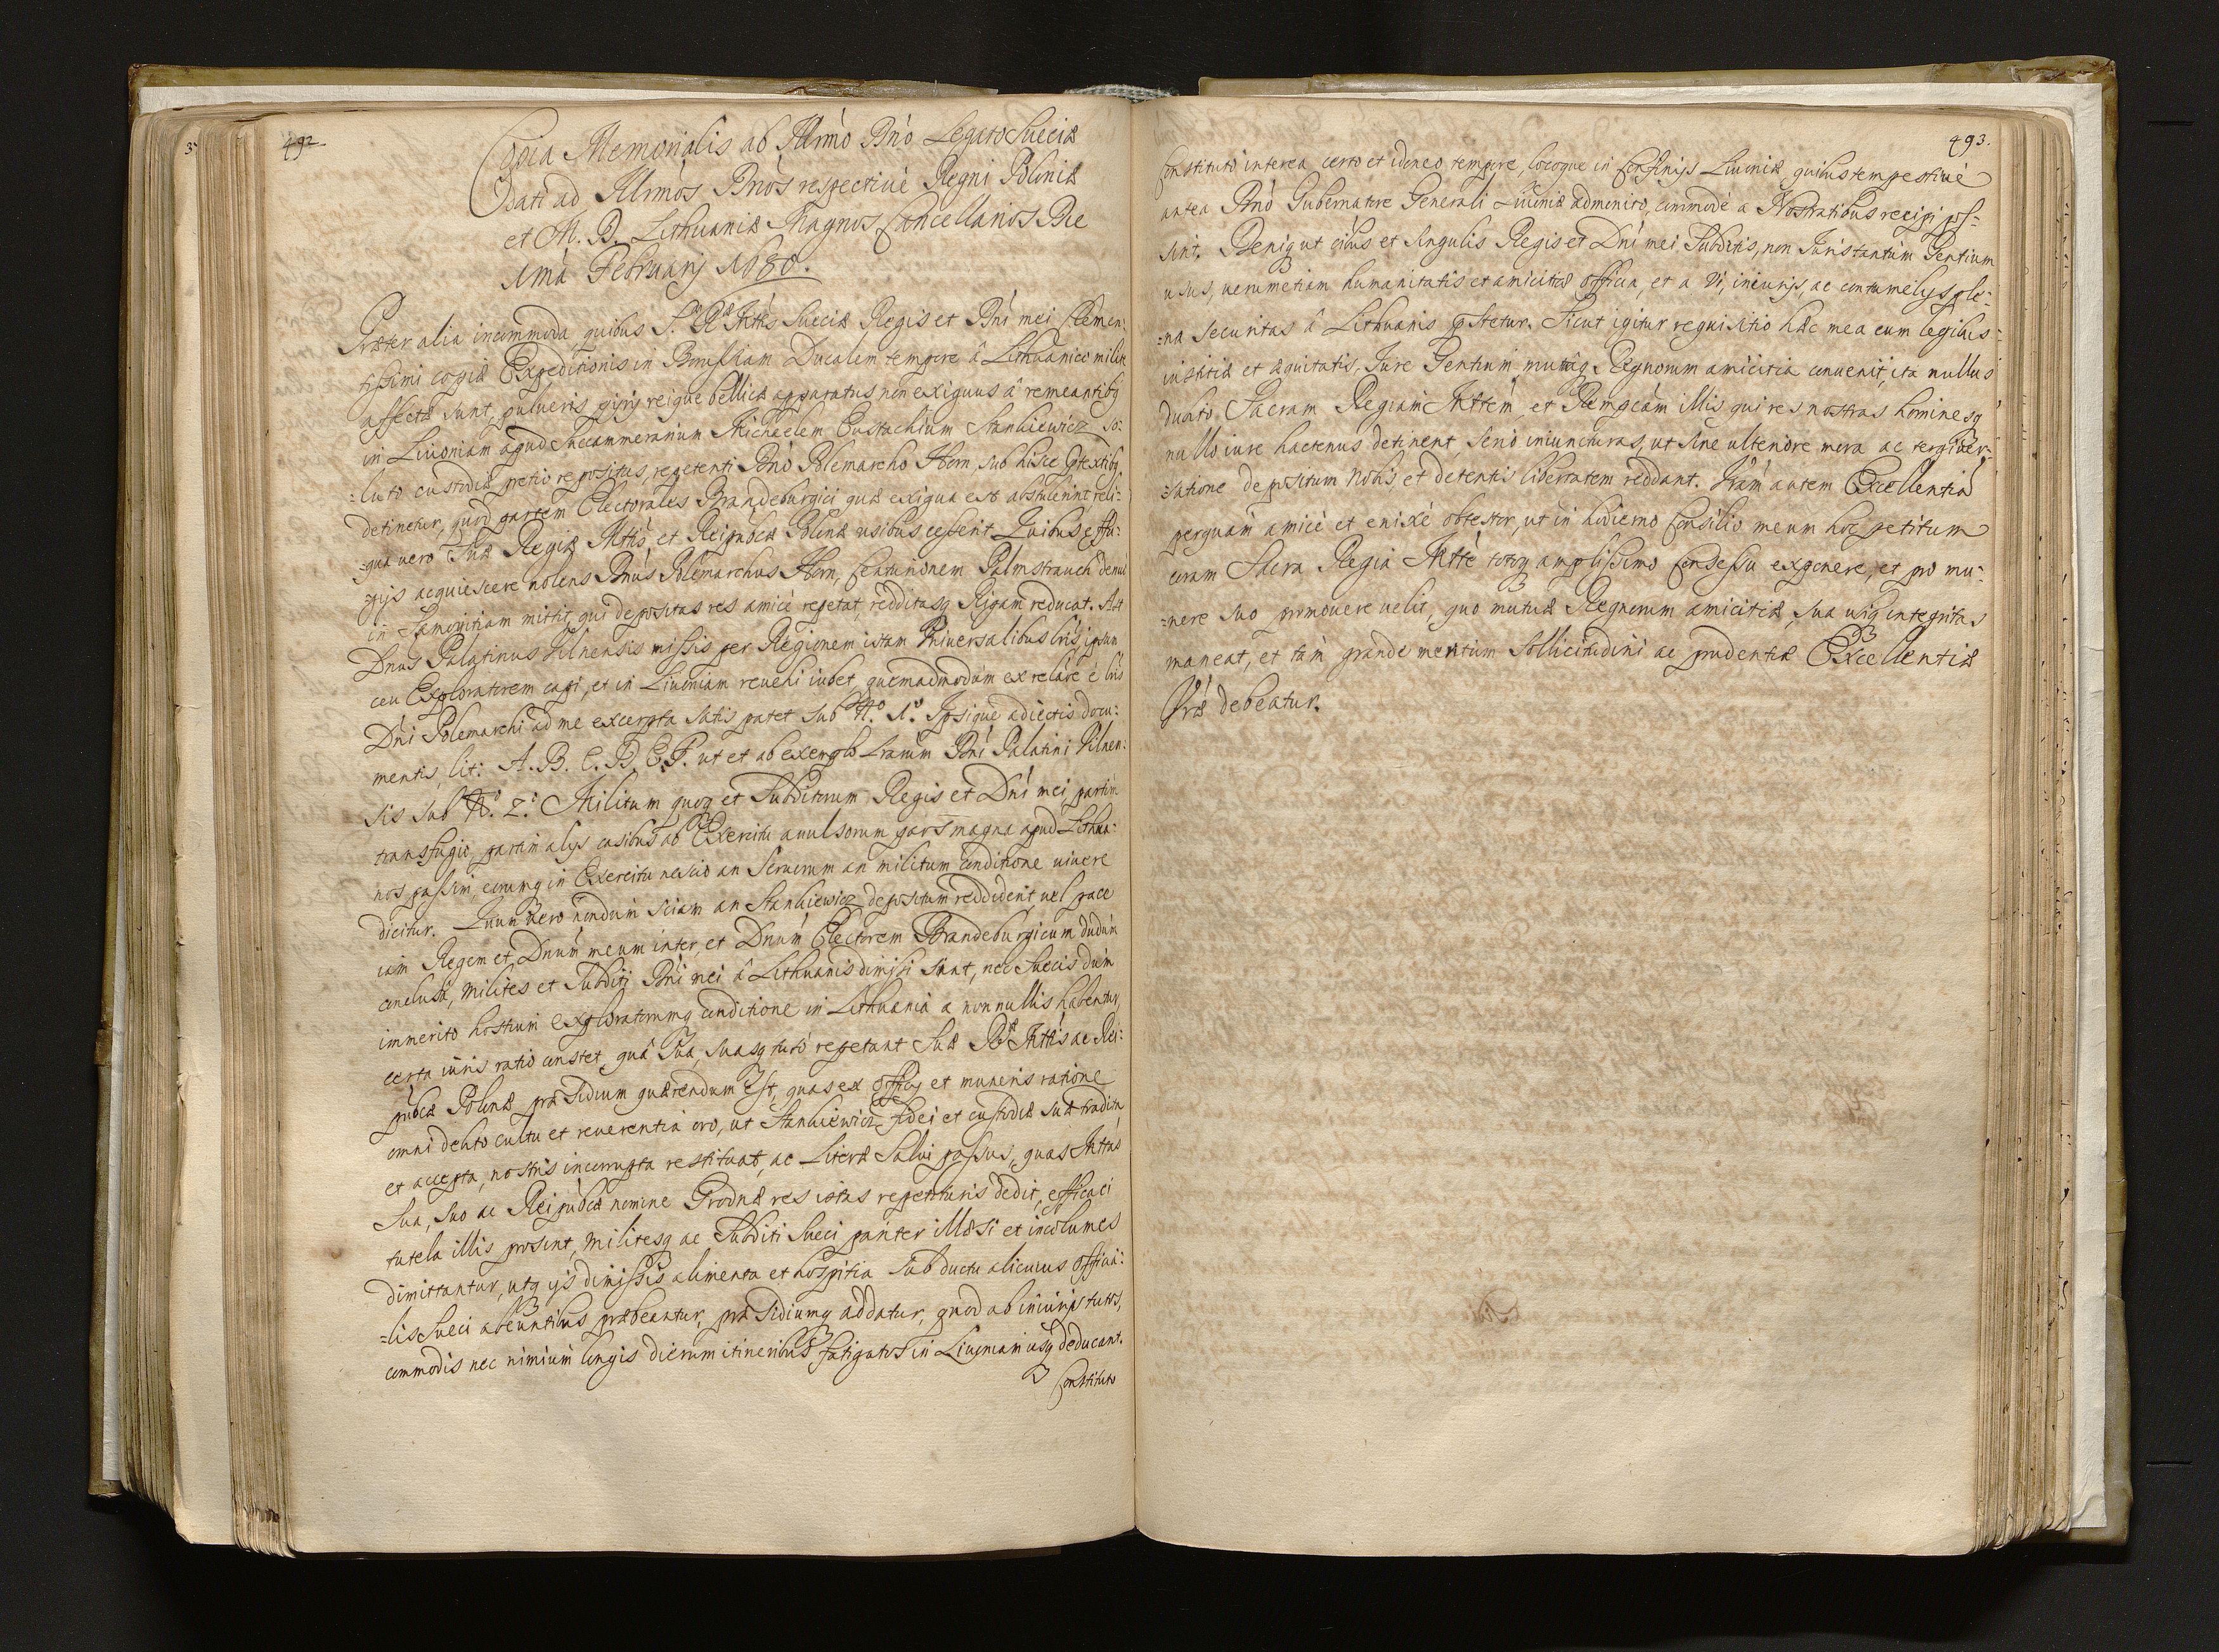 492
Copia Memorialis ab Illmo Dno Legato Sueciæ
Dati ad Illmos Dnos respectivè Regni Poloniæ
et M. D. Lithuaniæ Magnos Cancellarios Die
ima Februarij 1680.
Præter alia incommoda, quibus S. Ræ Mttis Sueciæ Regis et Dni mei Clemen:
tissimi copiæ Expeditionis in Prussiam Ducalem tempore â Lithuanico milite
affectæ sunt, pulveris pyrij reique bellicæ apparatus non exiguus â remeantibq
in Livoniam apud Succammerarium Michaelem Eustachium Stankiewicz so:
=luto custodiæ pretio repositus, repetenti Dno Polemarcho Horn, sub hisce ptextibq
detinetur, quod partem Electorales Brandeburgici quæ exigua est abstulerint reli:
=qua vero Suæ Regiæ Mttis et Reipublicæ Polonæ usibus cesserit. Quibus effu:
gijs acquiescere nolens Dnus Polemarchus Horn, Centurionem Palmstrauch denuò
in Samogitiam mittit, qui depositas res amicè repetat, redditasq Rigam reducat. Ast
Dnus Palatinus Vilnensis missis per Regionem istam Universalibus lris ipsum
ceu Exploratorem capi, et in Livoniam revehi iubet, quemadmodum ex relatè è lris
Dni Polemarchi ad me excerpta satis patet sub No. 1o. Ipsique adiectis docu:
mentis, lit: A. B. C. D. E. F. ut et ab exemplo Lrarum Dni Palatini Vilnen:
sis sub N: 2: Militum quoq et Subditorum Regis et Dni mei, partim
transfugio, partim alijs casibus ab Exercitu avulsorum pars magna apud Lithua:
nos passim, eorumq in Exercitu nescio an servorum an militum conditione vivere
dicitur. Quum vero nondum sciam an Stankiewicz depositum reddiderit, vel pace
iam Regem et Dnum meum inter, et Dnum Electorem Brandeburgicum dudum
conclusa, Milites et Subditi Dni mei â Lithuanis dimissi sint, nec Suecis dum
immerito hostium exploratorumq conditione in Lithuania a nonnullis habentur,
certa iuris ratio constet, quâ sua, suasq tutò repetant Suæ Ræ Mttis ac Rei:
publicæ Polonæ præsidium quærendum est, quas ex officij et muneris ratione
omni debito cultu et reverentia oro, ut Stankiewicz fidei et custodiæ suæ tradita
et accepta, nostris incorrupta restituat, ac Literæ Salvi passus, quas Mttas
Sua, suo ac Reipublicæ nomine Grodnæ res istas repetituris dedit, efficaci
tutela illis prosint, militesq ac Subditi Sueci pariter illæsi et incolumes
dimittantur, utq ijs dimissis alimenta et hospitia sub ductu alicuius officia:
=lis Sueci abeuntibus præbeantur, præsidiumq addatur, quod ab iniurijs tutos,
commodis nec nimium longis dierum itineribus fatigatos in Livoniam usq deducant.
Constituto
493.
Constituto interea certo et idoneo tempore, locoque in Confinijs Livoniæ, quibus tempestivè
antea Dno Gubernatore Generali Livoniæ admonito, commodè a Nostratibus recipi pos:
sint. Deniq ut cibus et singulis Regis et Dni mei Subditis, non Juris tantum Gentium
usus, verum etiam humanitatis et amicitiæ officia, et a vi, iniurijs, ac contumelijs ple:
=na securitas â Lithuanis pstetur. Sicut igitur requisitio hæc mea cum legibus
iustitiæ et æquitatis, Jure Gentium, mutuâq Regnorum amicitia convenit, ita nullus
dubito, Sacram Regiam Mttem, et Rempcam illis qui res nostras hominesq
nullo iure hactenus detinent, serio iniuncturas, ut sine ulteriore mora ac tergiver:
=satione depositum nobis, et detentis libertatem reddant. Vram autem Excellentiã
perquam amicè et enixè obtestor, ut in hodierno Consilio meum hoc petitum
coram Sacra Regia Mtte totoq amplissimo Consessu exponere, et pro mu:
=nere suo promovere velit, quo mutuæ Regnorum amicitiæ, sua usq integritas
maneat, et tam grande meritum sollicitudini ac prudentiæ Excellentiæ
Vræ debeatur.